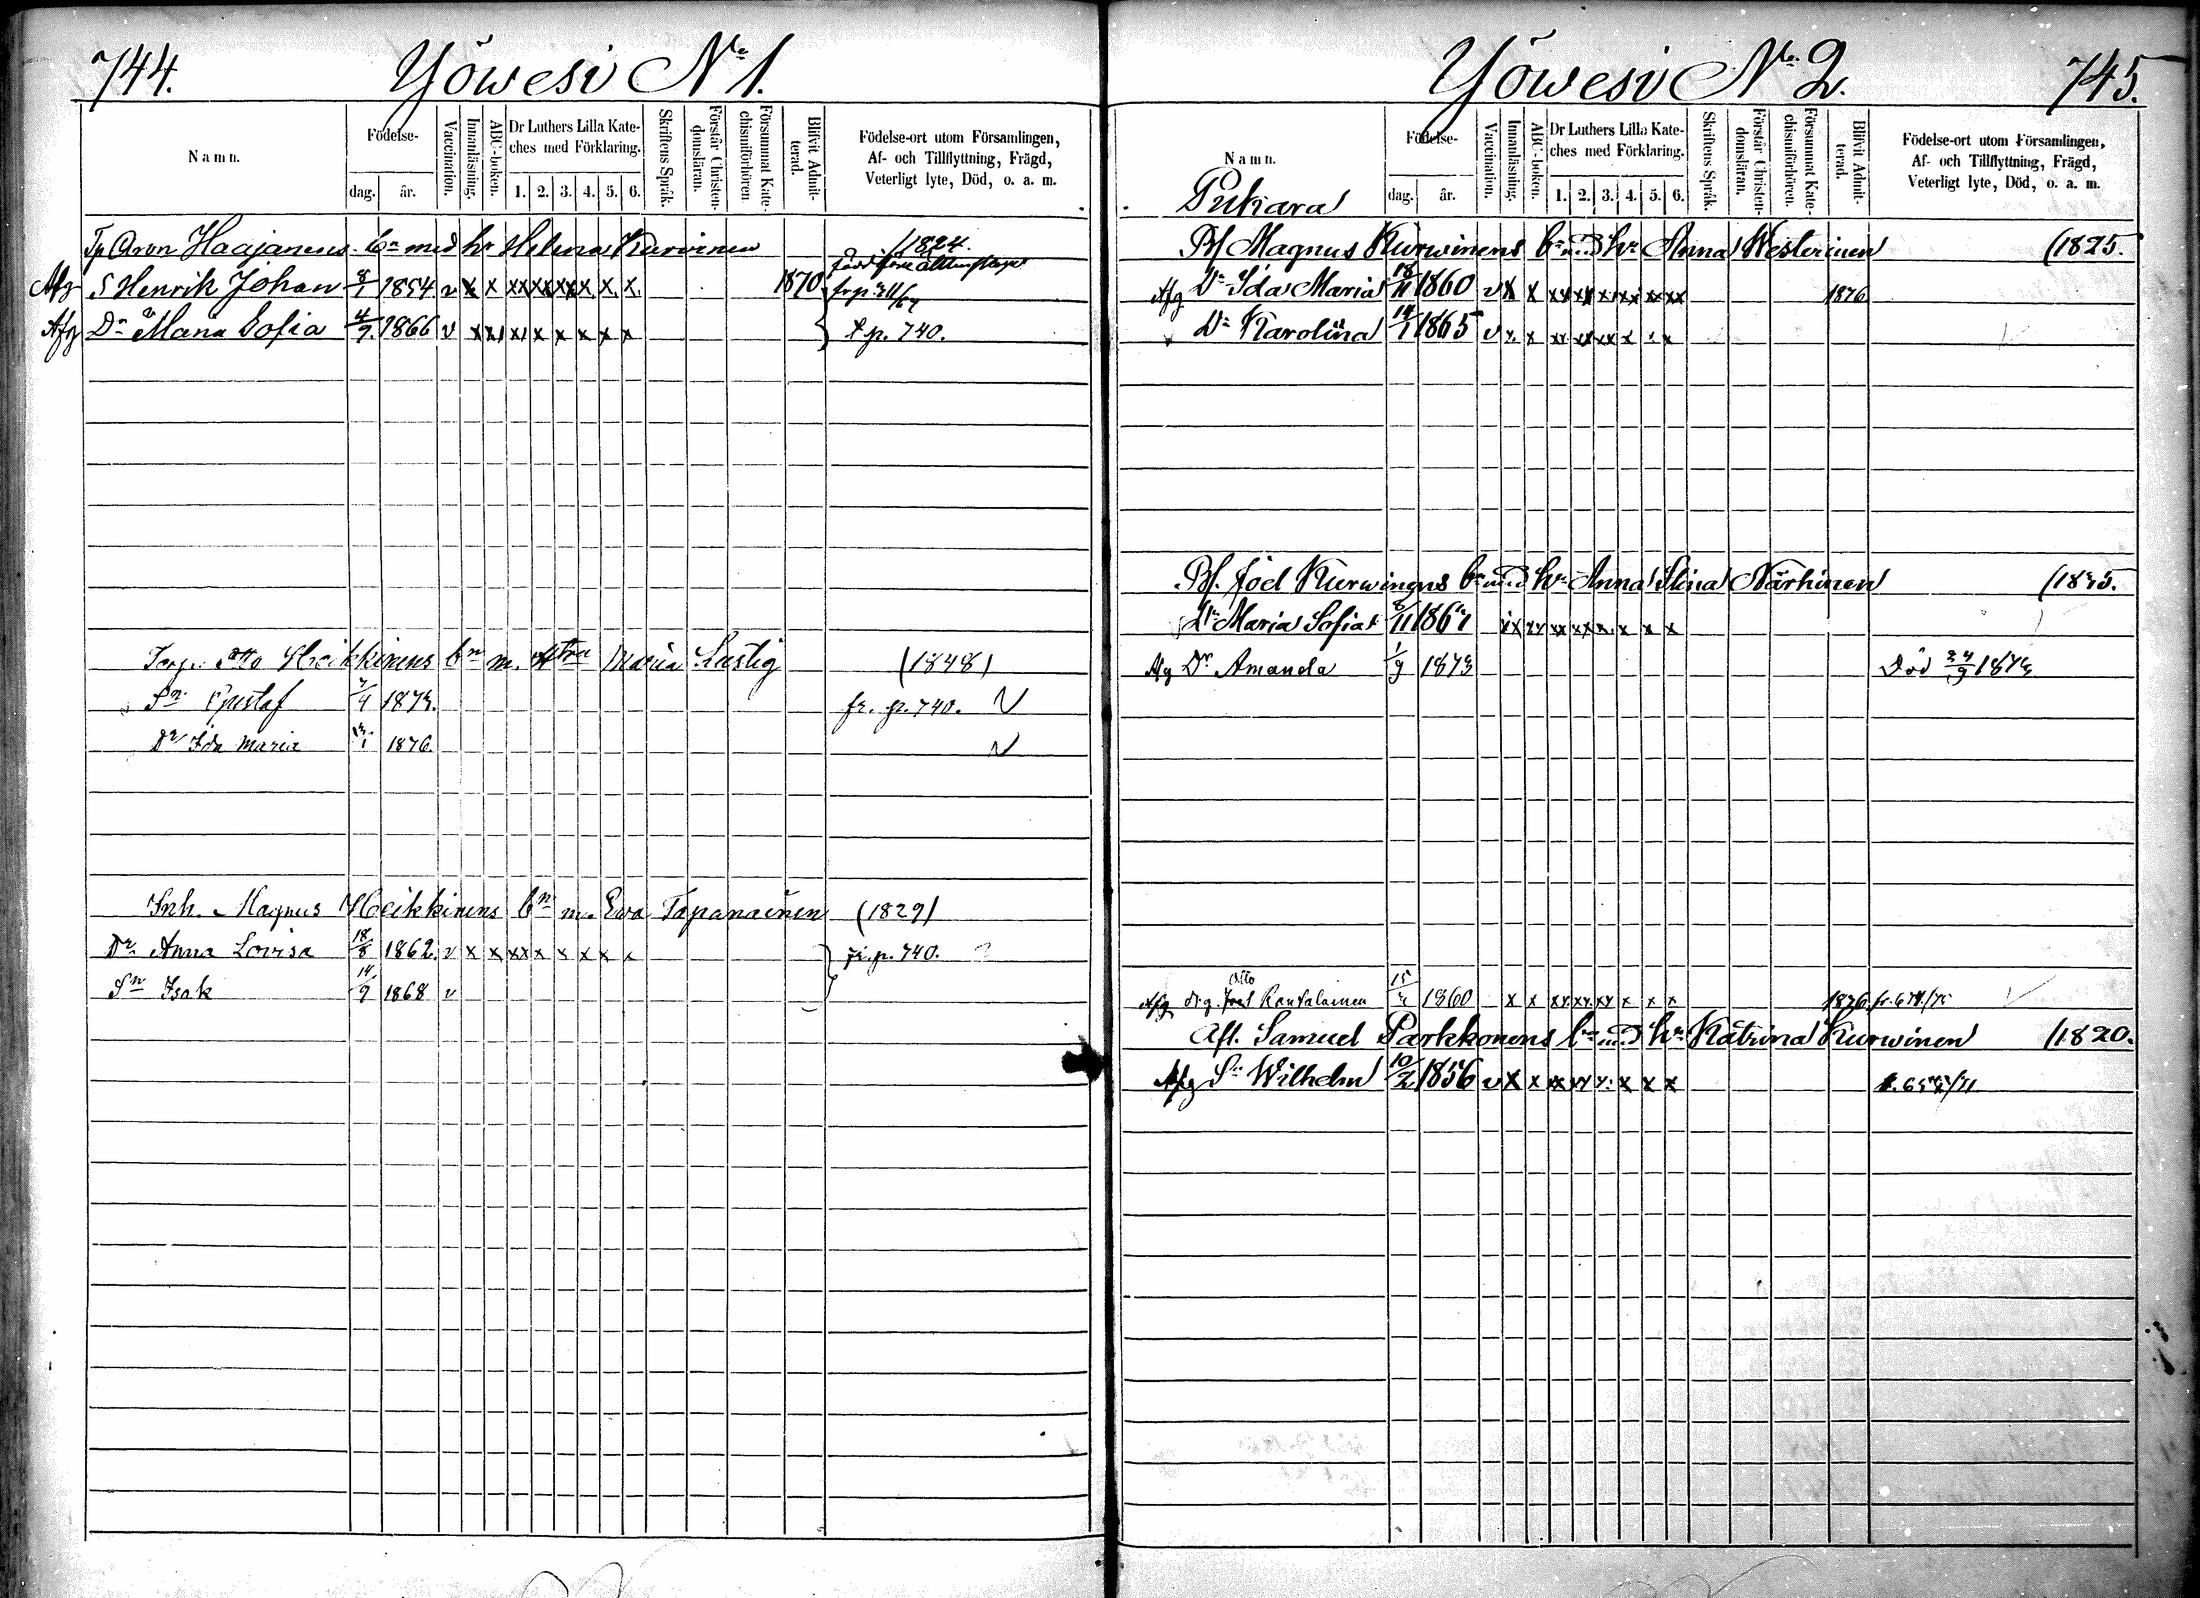 744. Yöwesi No 1.
Namn.
Födelse-
dag.
år.
Vaccination.
Innanläsning.
ABC-boken.
Dr Luthers Lilla Kate-
ches med Förklaring.
1. 2. 3. 4. 5. 6.
Skriftens Språk.
Förstår Christen-
domsläran.
Försummat Kate-
chismiförhören
Blifvit Admit-
terad.
Födelse-ort utom Församlingen,
Af- och Tillflyttning, Frägd,
Veterligt lyte, Död, o. a. m.
Aron Haajanens bn med hu Helena Kurvinen (1824.
Afg S Henrik Johan 8/1 1854 v x x xx xx xx x x x 1870
Afg Dr Maria Sofia 4/7 1866 v x x x x x x x x p. 740.
Otto Heikkinens bn m. Maria Lustig (1848)
Sn Gustaf 1873. fr. p. 740.
Dr Ida Maria 1876.
Inh. Magnus Heikkinens bn m. Ewa Tapanainen (1829)
Dr Anna Lovisa 18/8 1862. v x x xx x x x x x fr. p. 740.
Sn Isak 14/9 1868 v
Yöwesi No 2. 745.
Namn.
Pukara
Födelse-
dag.
år.
Vaccination.
Innanläsning.
ABC-boken.
Dr Luthers Lilla Kate-
ches med Förklaring.
1. 2. 3. 4. 5. 6.
Skriftens Språk.
Förstår Christen-
domsläran.
Försummat Kate-
chismiförhören.
Blifvit Admit-
terad.
Födelse-ort utom Församlingen,
Af- och Tillflyttning, Frägd,
Veterligt lyte, Död, o. a. m.
Bf Magnus Kurwinens bn med hu Anna Westerinen (1825.
Afg Dr Ida Maria 18/11 1860 v x x xx xx x xx xx xx 1876
Dr Karolina 14/1 1865 v x x xx xx xx x x x
Bf. Joel Kurwinens bn med hu Anna Stina Närhinen
Dr Maria Sofia 8/11
Afg Dr Amanda 1/9 1873 Död 1873
Afg Otto Rautalainen 1860 x x xx xx xx x x x 1876
Aft. Samuel Parkkonens bn med hu Katrina Kurwinen (1820.
Afg Sn Wilhelm 10/2 1856 v x x xx xx x x x x